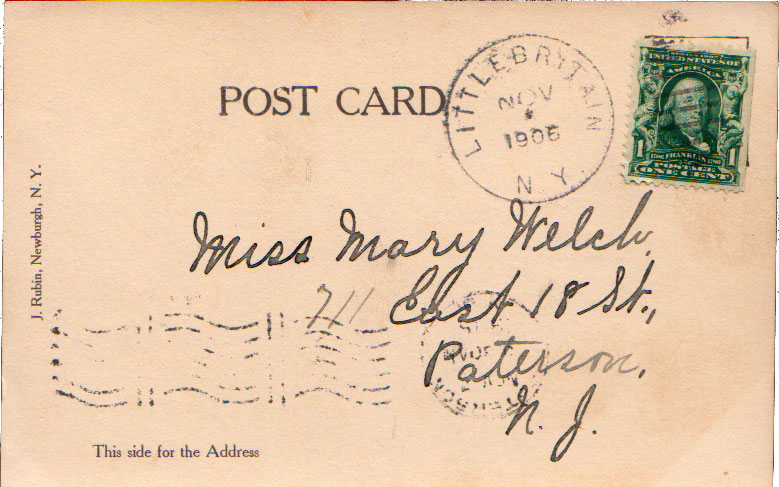 POST CARD
LITTLEBRITAIN
NOV
1906
N.Y.
UNITED STATES OF
AMERICA
1 1706 FRANKLIN 1790 1
POSTAGE
ONE CENT
J. Rubin, Newburgh, N. Y.
Miss Mary Welch,
711 East 18 St.,
Paterson,
N. J.
This side for the Address